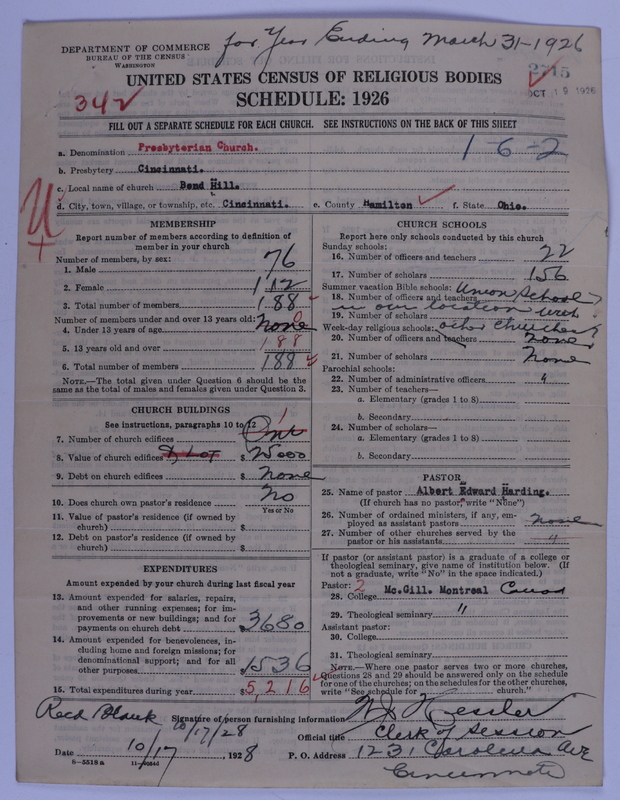 for Year Ending March 31-1926
DEPARTMENT OF COMMERCE
BUREAU OF THE CENSUS
WASHINGTON
UNITED STATES CENSUS OF RELIGIOUS BODIES
SCHEDULE: 1926
342
OCT 19 1926
FILL OUT A SEPARATE SCHEDULE FOR EACH CHURCH. SEE INSTRUCTIONS ON THE BACK OF THIS SHEET
a. Denomination Presbyterian Church.
1-6-2
b. Presbytery Cincinnati.
c. Local name of church Bond Hill.
d. City, town, village, or township, etc. Cincinnati. e. County Hamilton f. State Ohio.
U
MEMBERSHIP
Report number of members according to definition of
member in your church
Number of members, by sex:
1. Male 76
2. Female 112
3. Total number of members 188
Number of members under and over 13 years old:
4. Under 13 years of age none 0
5. 13 years old and over 188
6. Total number of members 188
NOTE.—The total given under Question 6 should be the
same as the total of males and females given under Question 3.
CHURCH BUILDINGS
See instructions, paragraphs 10 to 12
7. Number of church edifices One 1
8. Value of church edifices & Lot $ 25000
9. Debt on church edifices $ none
10. Does church own pastor's residence No
Yes or No
11. Value of pastor's residence (if owned by
church) $
12. Debt on pastor's residence (if owned by
church) $
EXPENDITURES
Amount expended by your church during last fiscal year
13. Amount expended for salaries, repairs,
and other running expenses; for im-
provements or new buildings; and for
payments on church debt $ 3680
14. Amount expended for benevolences, in-
cluding home and foreign missions; for
denominational support; and for all
other purposes $ 1536
15. Total expenditures during year $ 5,216
CHURCH SCHOOLS
Report here only schools conducted by this church
Sunday schools:
16. Number of officers and teachers 22
17. Number of scholars 156
Summer vacation Bible schools: Union School
18. Number of officers and teachers
in our location with
19. Number of scholars
Week-day religious schools: other Churches
20. Number of officers and teachers none
21. Number of scholars None
Parochial schools:
22. Number of administrative officers "
23. Number of teachers—
a. Elementary (grades 1 to 8)
b. Secondary
24. Number of scholars—
a. Elementary (grades 1 to 8)
b. Secondary
PASTOR
25. Name of pastor Albert Edward Harding.
(If church has no pastor, write "None")
26. Number of ordained ministers, if any, em-
ployed as assistant pastors none
27. Number of other churches served by the
pastor or his assistants "
If pastor (or assistant pastor) is a graduate of a college or
theological seminary, give name of institution below. (If
not a graduate, write "No" in the space indicated.)
Pastor: 2
28. College Mc.Gill. Montreal
29. Theological seminary "
Assistant pastor:
30. College
31. Theological seminary
NOTE.—Where one pastor serves two or more churches,
Questions 28 and 29 should be answered only on the schedule
for one of the churches; on the schedules for the other churches,
write "See schedule for church."
Recd Blank 10/17/28
Signature of person furnishing information
Official title Clerk of Session
Date 10/17, 1928 P. O. Address 1231 Carolina Ave
8—5518 a
Cincinnati